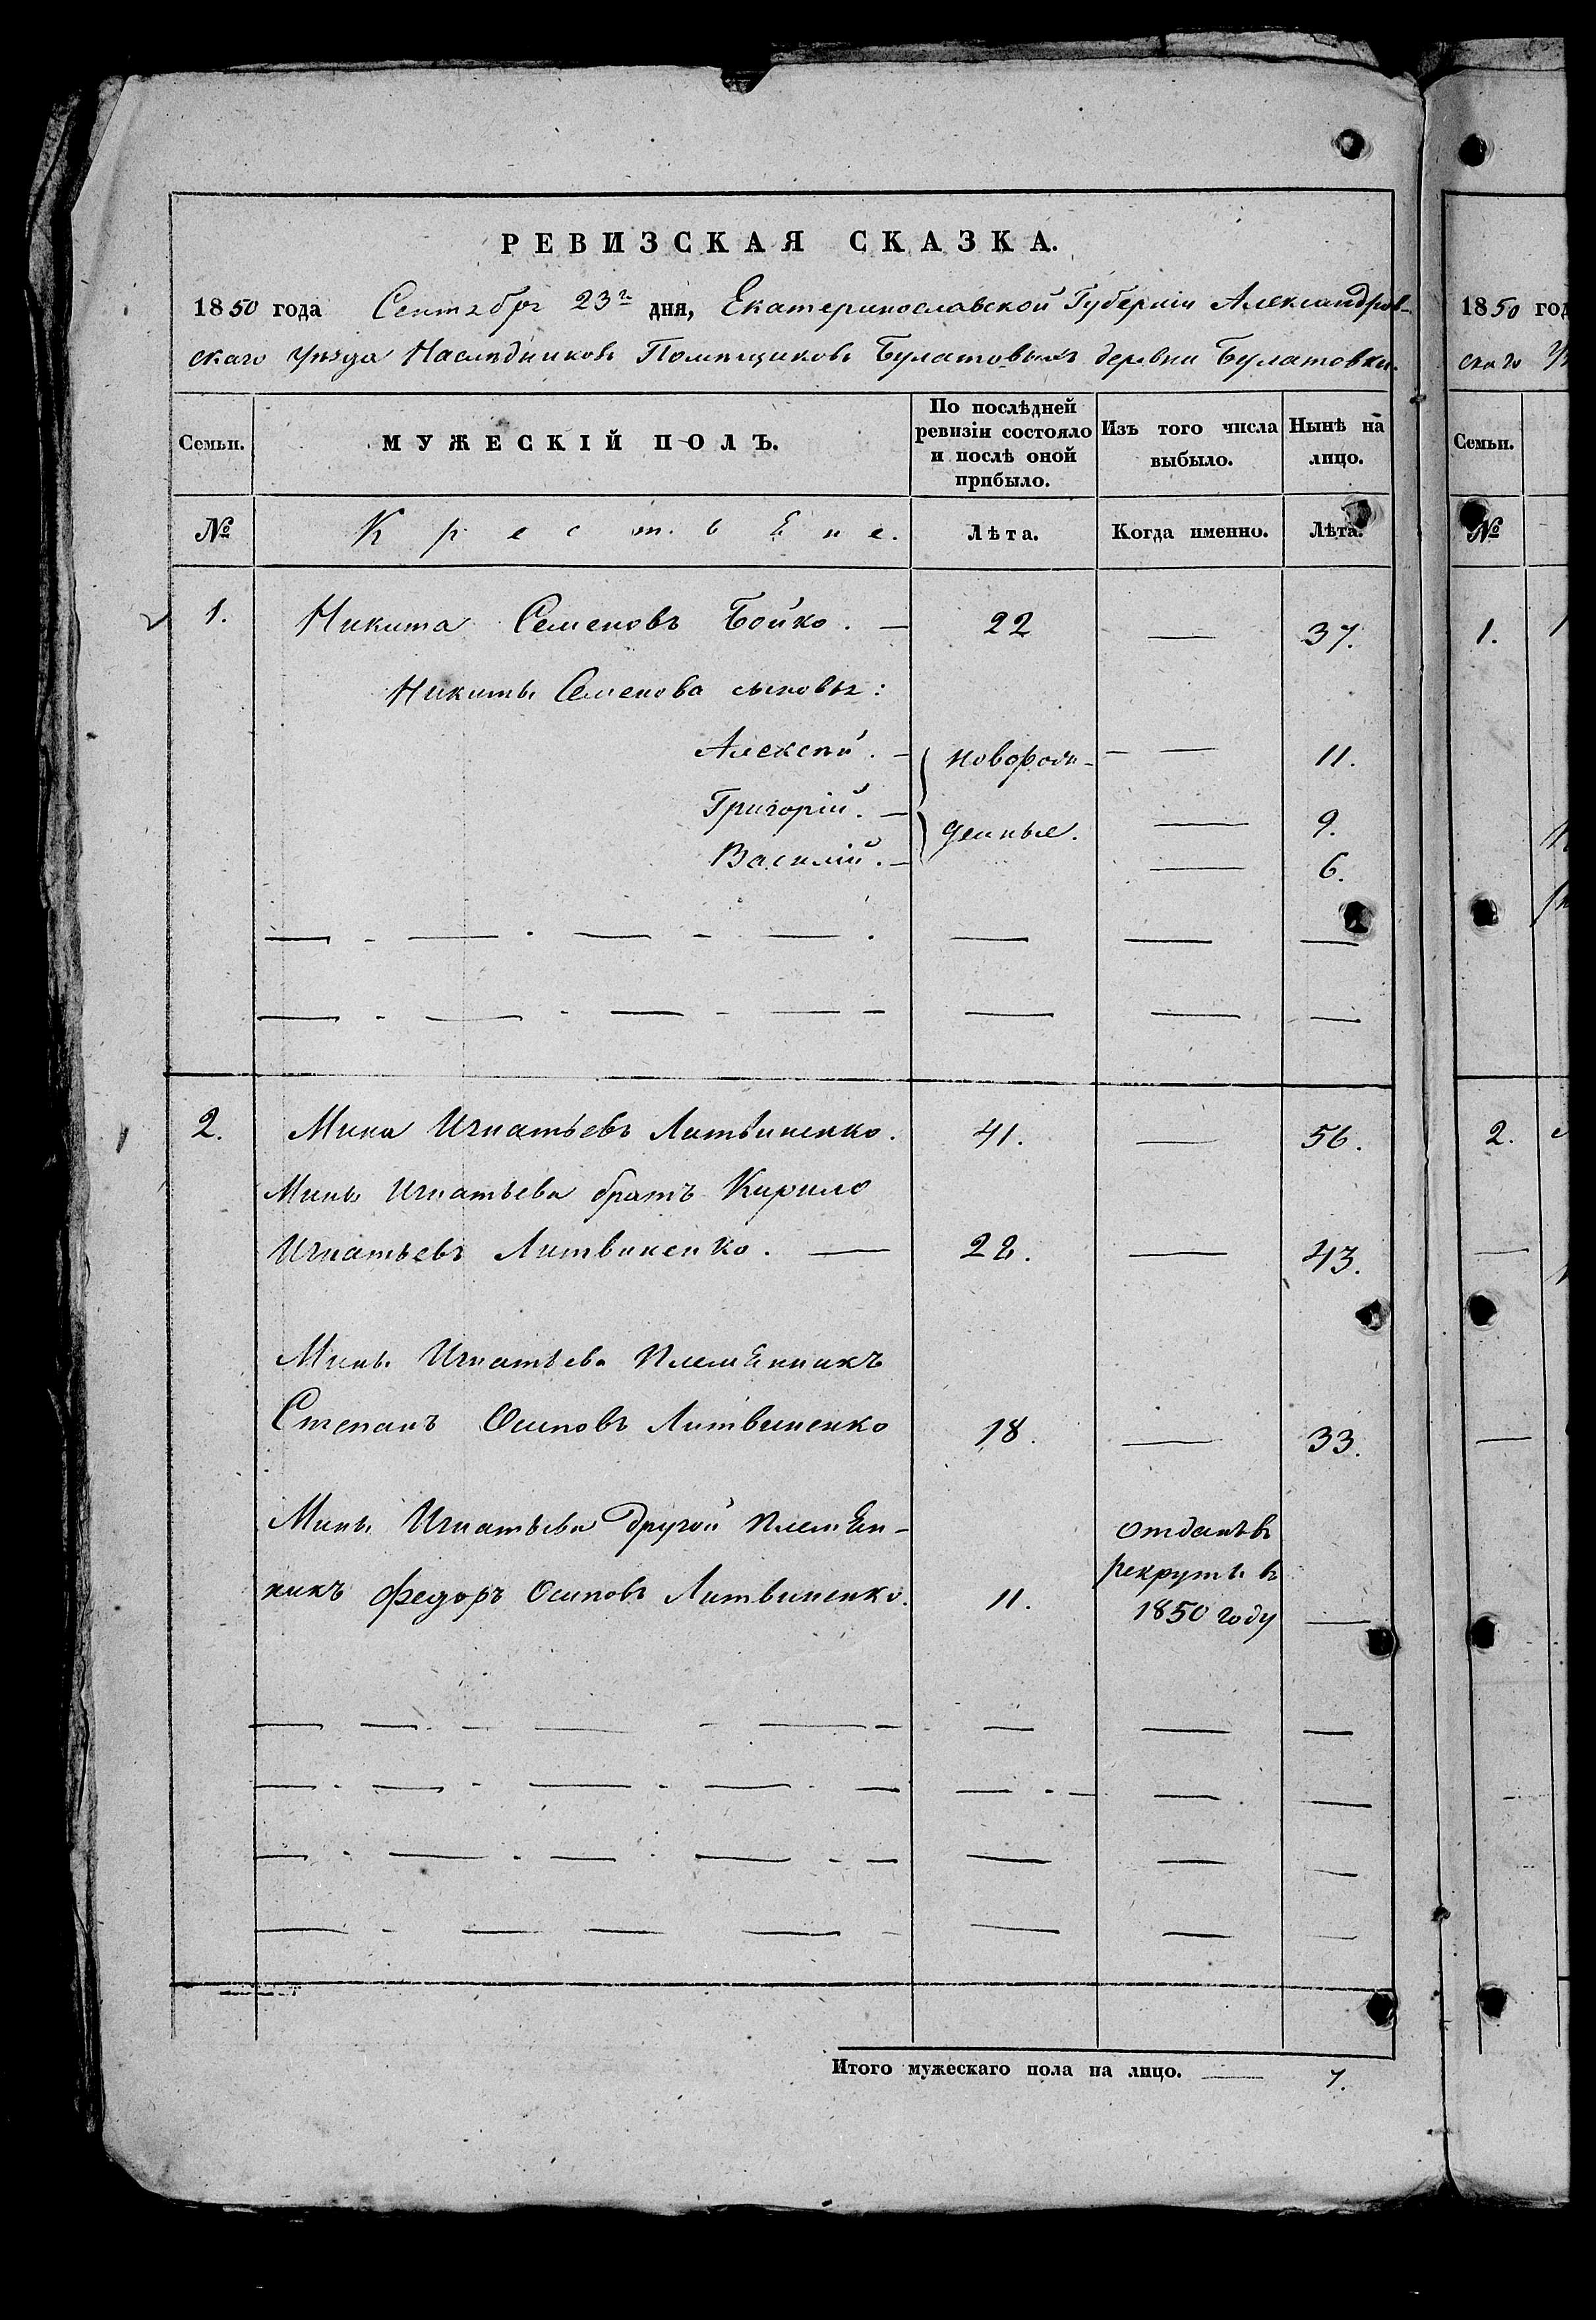 РЕВИЗСКАЯ СКАЗКА.
1850 года Сентября 23го дня, Екатеринославской Губерніи Александров-
скаго Уѣзда Наслѣдниковъ Помѣщиковъ Булатовыхъ деревни Булатовки.
Семьи. МУЖЕСКІЙ ПОЛЪ. По послѣдней ревизіи состояло и послѣ оной прибыло. Изъ того числа выбыло. Нынѣ на лицо.
№ Крестьяне. Лѣта. Когда именно. Лѣта.
1. Никита Семеновъ Бойко. — 22 — 37.
Никиты Семенова сыновья:
Алексѣй. — новорож- — — 11.
Григорій. — денные. — 9.
Василій. — — 6.
2. Мина Игнатьевъ Литвиненко. 41. — 56.
Мины Игнатьева братъ Кирило
Игнатьевъ Литвиненко. — 28. — 43.
Мины Игнатьева племянникъ
Степанъ Осиповъ Литвиненко 18. — 33.
Мины Игнатьева другой племян- отданъ въ
рекруты въ
никъ Федоръ Осиповъ Литвиненко. 11. 1850 году —
Итого мужескаго пола на лицо. — 7.
1850 год
скаго
Семьи.
№
1.
2.